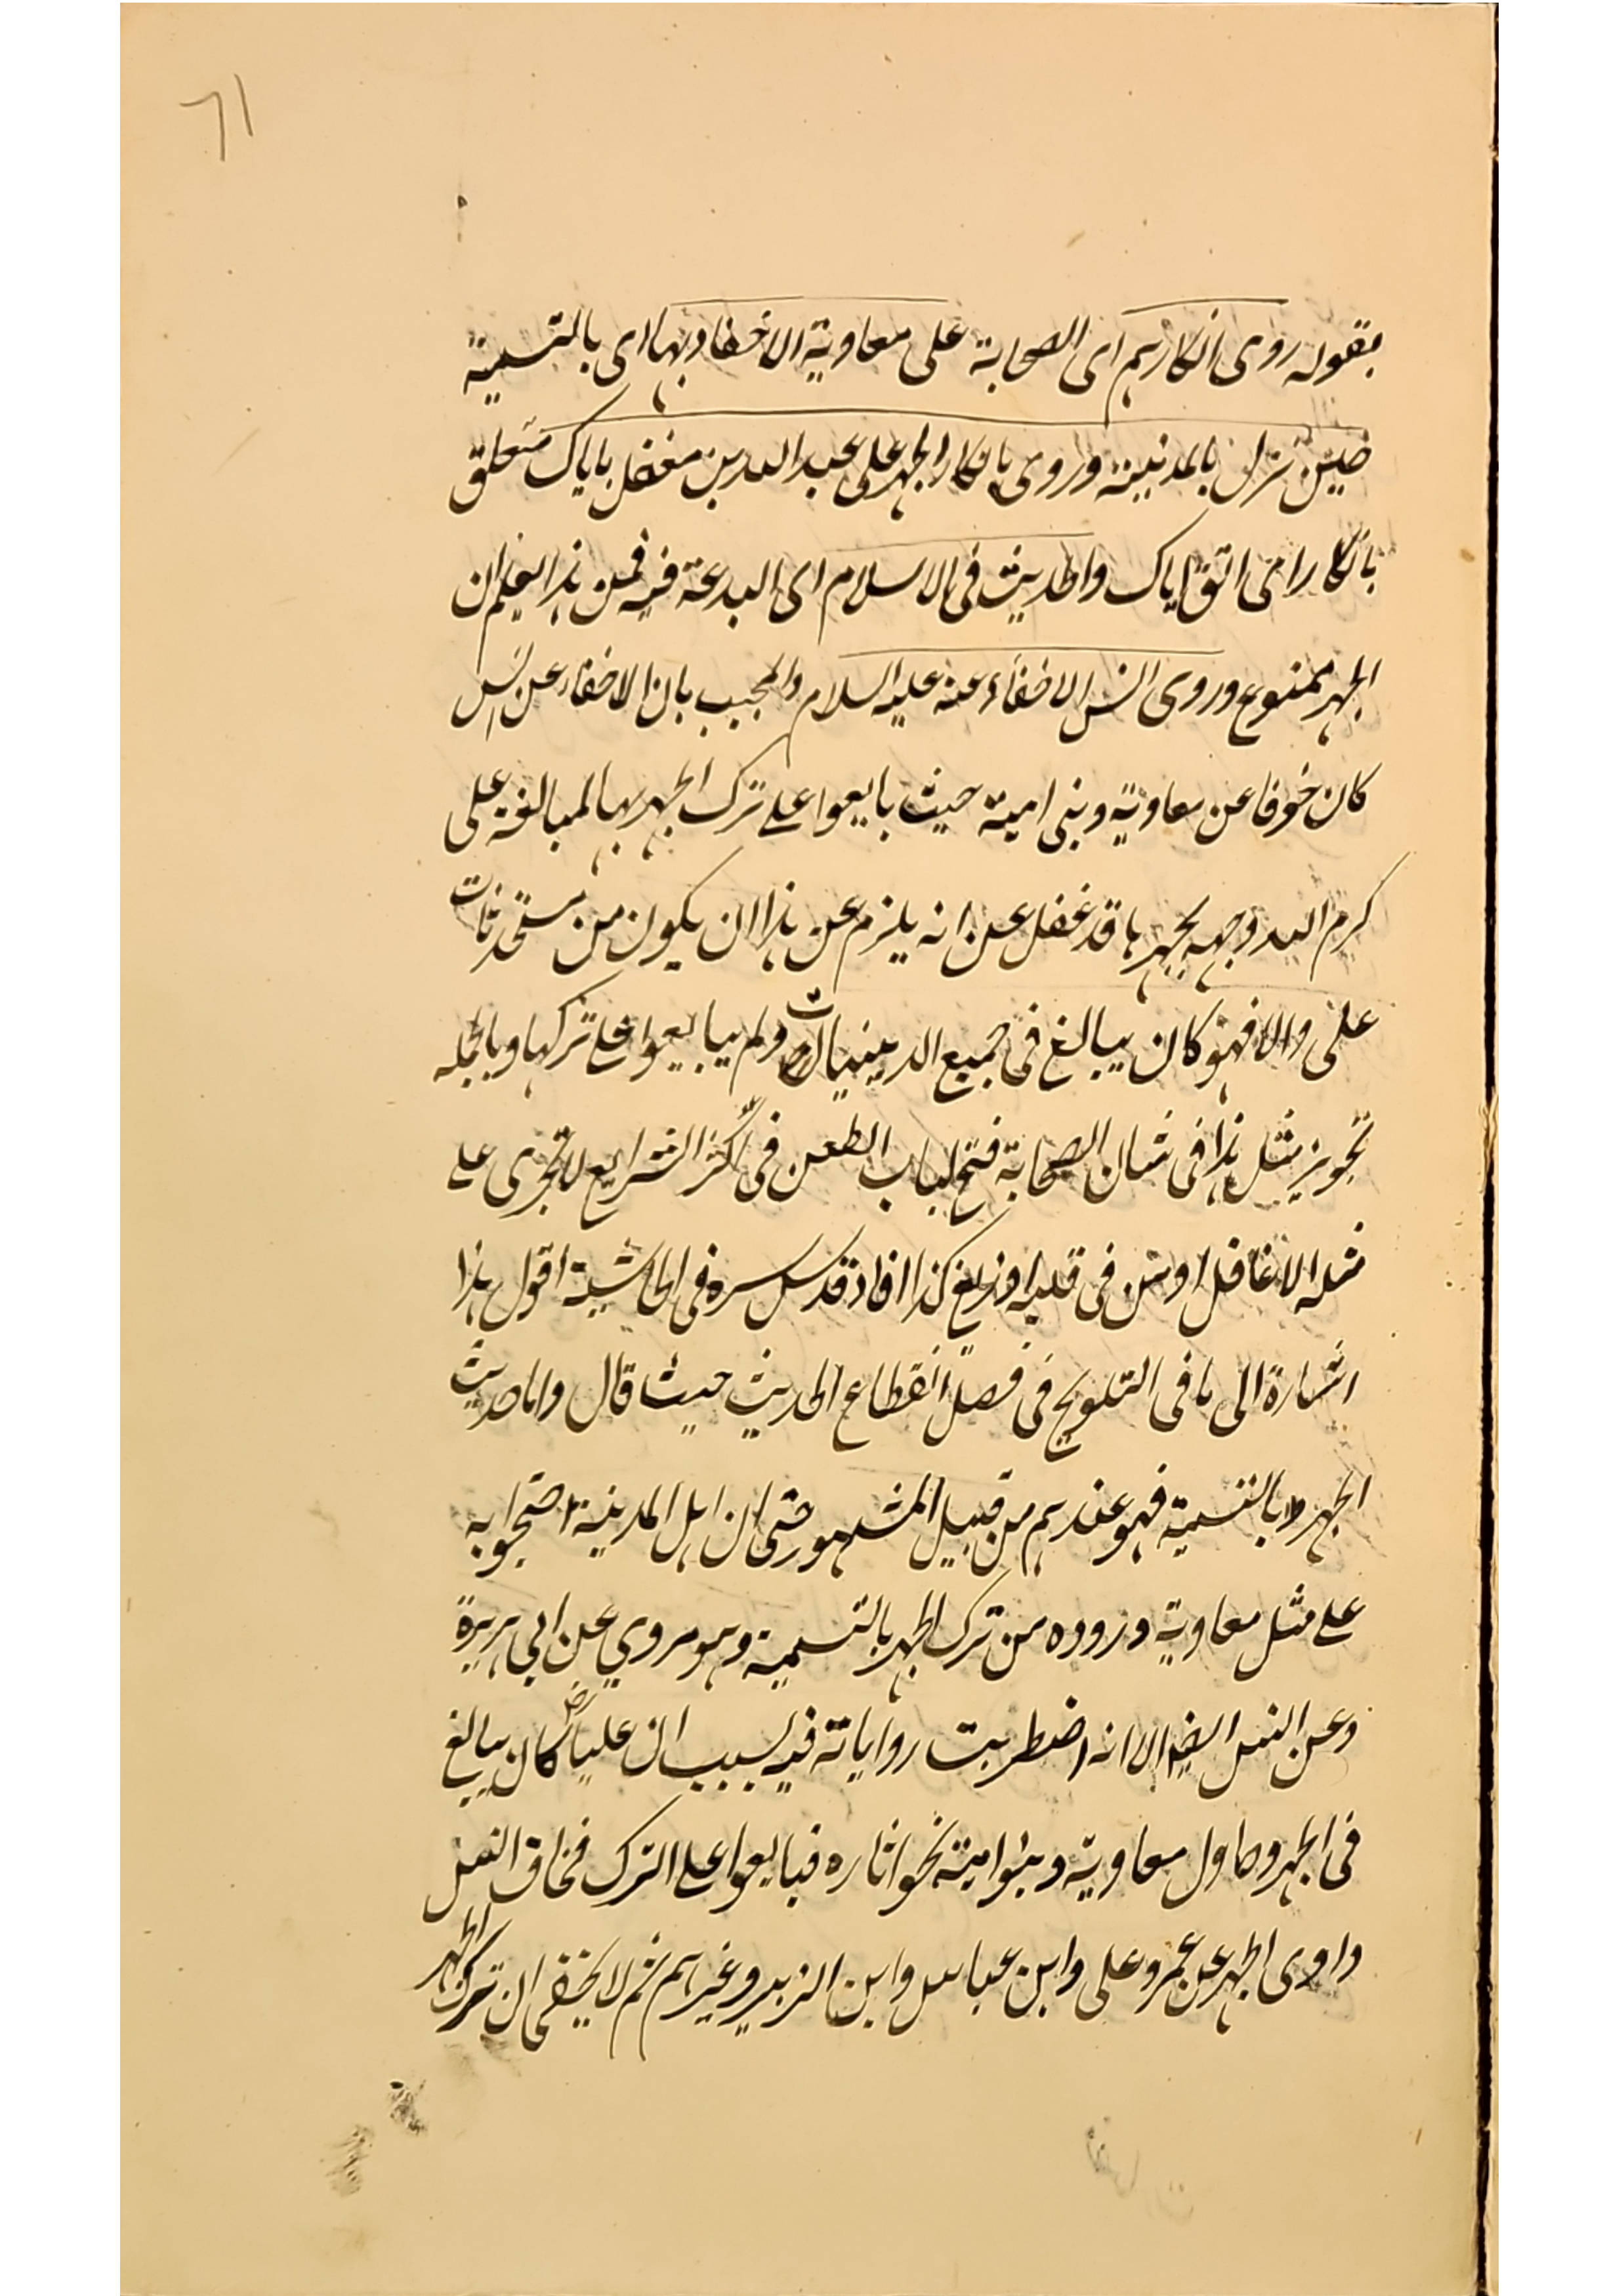 ٦١
بقوله روى انكارهم اى الصحابة على معاوية الاخفاء بها اى بالتسمية
حين نزل بالمدينة وروى بانكار الجهر على عبد الله بن مغفل باياك متعلق
بانكار اى اتق اياك والحديث فى الاسلام اى البدعة فيه فمن هذا يعلم ان
الجهر ممنوع وروى انس الاخفاء عنه عليه السلام والمجيب بان الاخفاء عن انس
كان خوفا عن معاوية وبنى امية حيث بايعوا على ترك الجهر بها لمبالغة على
كرم الله وجهه بجهرها قد غفل عن انه يلزم عن هذا ان يكون من مستحدثات
على والا فهو كان يبالغ فى جميع الدينيات ولم يبايعوا على تركها وبالجملة
تجويز مثل هذا فى شان الصحابة فتح لباب الطعن فى اكثر الشرايع لا يجرى على
مثله الا غافل او من فى قلبه زيغ كذا افاد قدس سره فى الحاشية اقول هذا
اشارة الى ما فى التلويح فى فصل انقطاع الحديث حيث قال واما حديث
الجهر بالتسمية فهو عندهم من قبيل المشهور حتى ان اهل المدينة احتجوا به
على مثل معاوية وردوه من ترك الجهر بالتسمية وهو مروي عن ابي هريرة
وعن انس ايضا الا انه اضطربت رواياته فيه بسبب ان عليا رض كان يبالغ
فى الجهر وحاول معاوية وبنو امية نحو اثاره فبايعوا على الترك فخاف انس
واوى الجهر عن عمرو على وابن عباس وابن الزبير وغيرهم ثم لا يخفى ان ترك الجهر